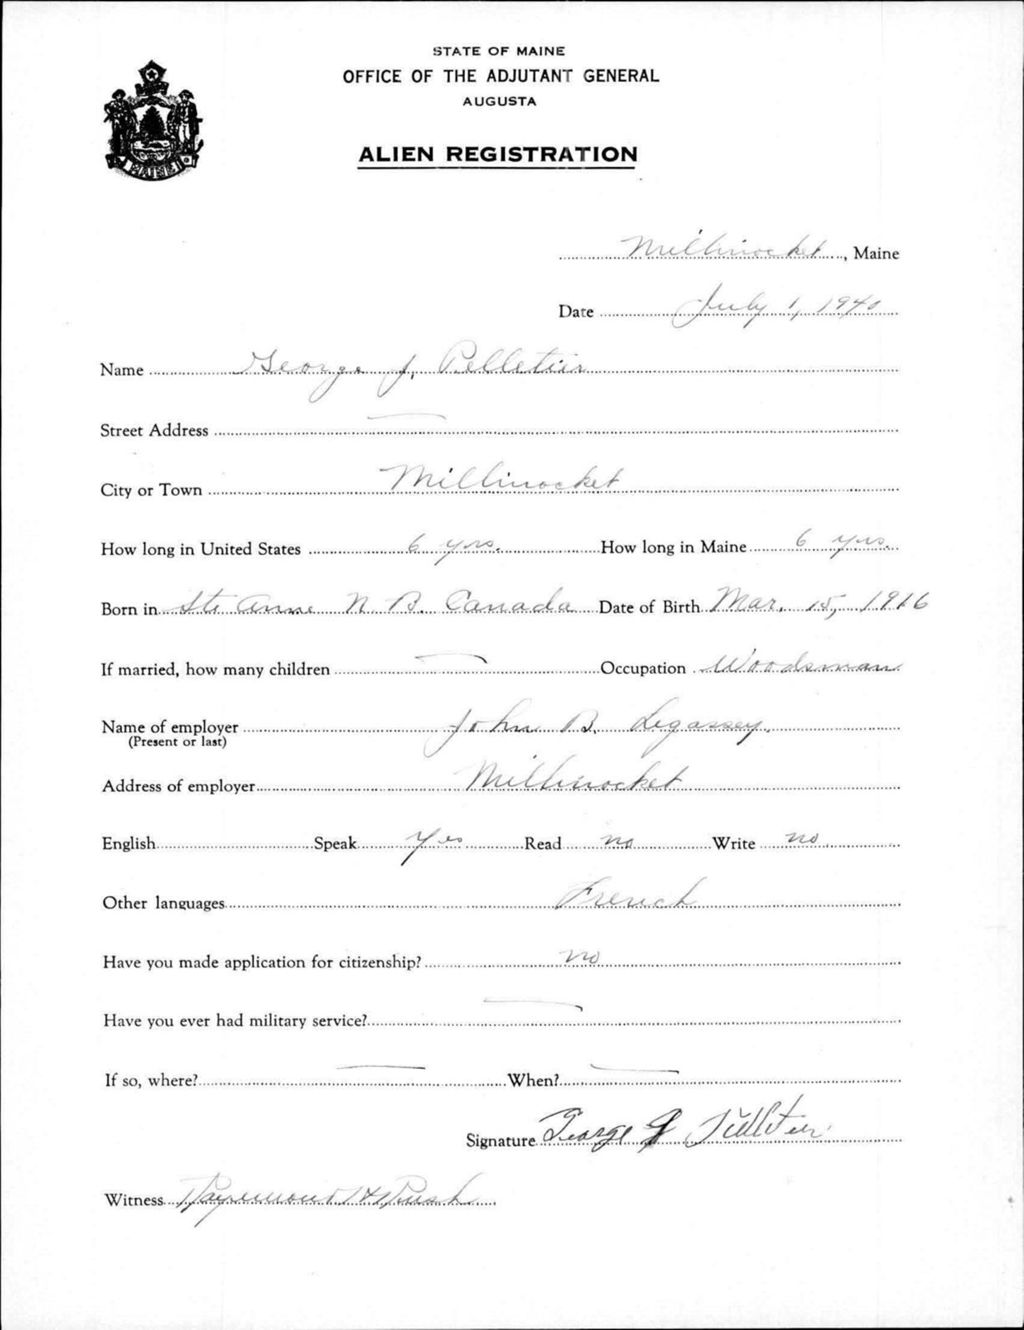 STATE OF MAINE
OFFICE OF THE ADJUTANT GENERAL
AUGUSTA
ALIEN REGISTRATION
MAINE
Millinocket, Maine
Date July 1, 1940
Name George J. Pelletier
Street Address —
City or Town Millinocket
How long in United States 6 yrs. How long in Maine 6 yrs.
Born in Ste Anne N. B. Canada Date of Birth Mar. 15, 1916
If married, how many children — Occupation Woodsman
Name of employer John B. Legassey.
(Present or last)
Address of employer Millinocket
English Speak Yes Read no Write no
Other languages French
Have you made application for citizenship? no
Have you ever had military service? —
If so, where? — When? —
Signature George J Pelletier
Witness Raymond H Rush